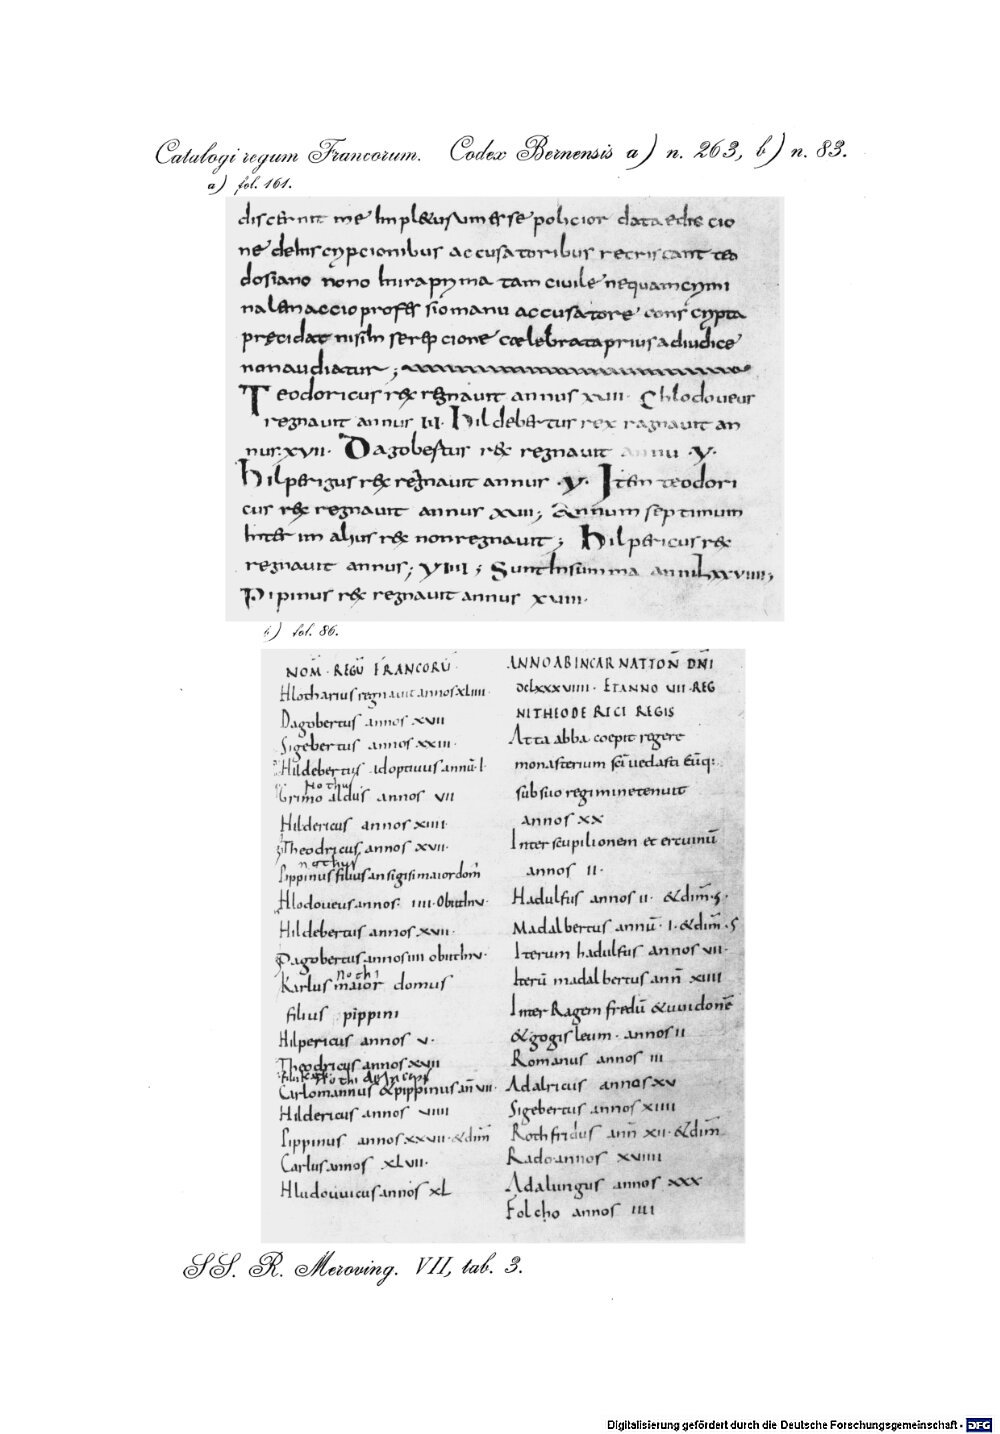 Catalogi regum Francorum. Codex Bernensis a) n. 263, b) n. 83.
a) fol. 161.
me impl& esse policior data edis cio
ne de inscrypcionibus accusatoribus teo
dosiano nono tam ciuile nequam crymi
nalem accio profes sio manu accusatore cons crypta
precidat nisi in serep cione cœlebrata prius adiudice
non audiatur;
Teodoricus rex regnauit annus xviii. Chlodoueus
regnauit annus iii. hildebertus rex ragnauit an
nus. xvii. Dagobertus rex regnauit annu .y.
hilperigus rex regnauit annus .y. Item teodori
cus rex regnauit annus xxiii; Annum septimum
Inter im alius rex non regnauit; hilpericus rex
regnauit annus; yiiii; Sunt In summa anni Lxxviiii;
Pipinus rex regnauit annus xviii.
b) fol. 86.
NOM̄ · REGŪ FRANCORŪ
Hlotharius regnauit annos xliiii
Dagobertus annos xvii
Sigebertus annos xxiii
Hildebertus adoptiuus annū · I ·
Nothus
Grimo aldus annos vii
Hildericus annos xiiii
Theodricus annos xvii·
nothus
Pippinus filius ansigisi maior dom̄
Hlodoueus annos iiii · Obiit
Hildebertus annos xvii·
Dagobertus annos iiii obiit
nothi
Karlus maior domus
filius pippini
Hilpericus annos v·
Theodricus annos xvii
Carlomannus & pippinus an̄ vii·
Hildericus annos viiii
Pippinus annos xxvii · & dim̄
Carlus annos xlvii·
Hludouuicus annos xL
ANNO AB INCARNATION̄ DN̄I
DCLXXXVIIII · ET ANNO VII · REG
NI THEODERICI REGIS
Atta abba coepit regere
monasterium sc̄i uedasti
sub suo regimine tenuit
annos xx
Inter scupilionem et ercuinū
annos ii·
Hadulfus annos ii· & dim̄· s·
Madalbertus annū· i· & dim̄· s
Iterum hadulfus annos vii·
Iterū madalbertus ann̄ xiiii
Inter Ragem fredū & uuidonē
& gogisleum· annos ii
Romanus annos iii
Adalricus annos xv
Sigebertus annos xiiii
Rothfridus ann̄ xii· & dim̄
Rado annos xviiii
Adalungus annos xxx
Folcho annos iiii
SS. R. Meroving. VII, tab. 3.
Digitalisierung gefördert durch die Deutsche Forschungsgemeinschaft - DFG